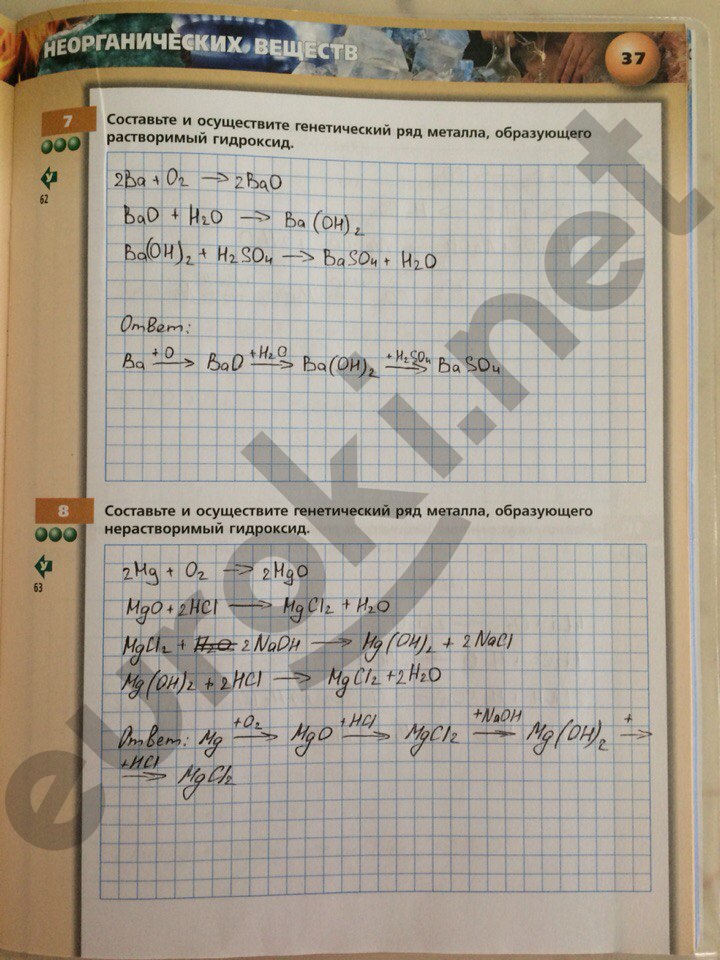 НЕОРГАНИЧЕСКИХ ВЕЩЕСТВ
37
7
Составьте и осуществите генетический ряд металла, образующего
растворимый гидроксид.
У
62
2Ba + O₂ → 2BaO
BaO + H₂O → Ba(OH)₂
Ba(OH)₂ + H₂SO₄ → BaSO₄ + H₂O
Ответ:
Ba +O → BaO +H₂O → Ba(OH)₂ +H₂SO₄ → BaSO₄
8
Составьте и осуществите генетический ряд металла, образующего
нерастворимый гидроксид.
У
63
2Mg + O₂ → 2MgO
MgO + 2HCl → MgCl₂ + H₂O
MgCl₂ + H₂O 2NaOH → Mg(OH)₂ + 2NaCl
Mg(OH)₂ + 2HCl → MgCl₂ + 2H₂O
Ответ: Mg +O₂ → MgO +HCl → MgCl₂ +NaOH → Mg(OH)₂ + →
+HCl → MgCl₂
euroki.net